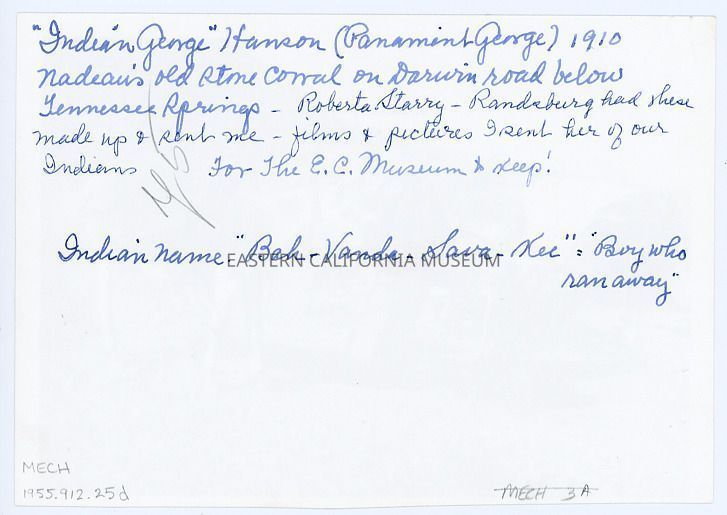 "Indian George" Hanson (Panamint George) 1910
Nadeau's old stone corral on Darwin road below
Tennessee Springs - Roberta Starry - Randsburg had these
made up & sent me - films & pictures I sent her of our
Indians For The E.C. Museum to keep!
Indian name "Bah-Vanda-Sava-Kee" = "Boy who
ran away"
EASTERN CALIFORNIA MUSEUM
MECH
1955.912.25d
MECH 3A